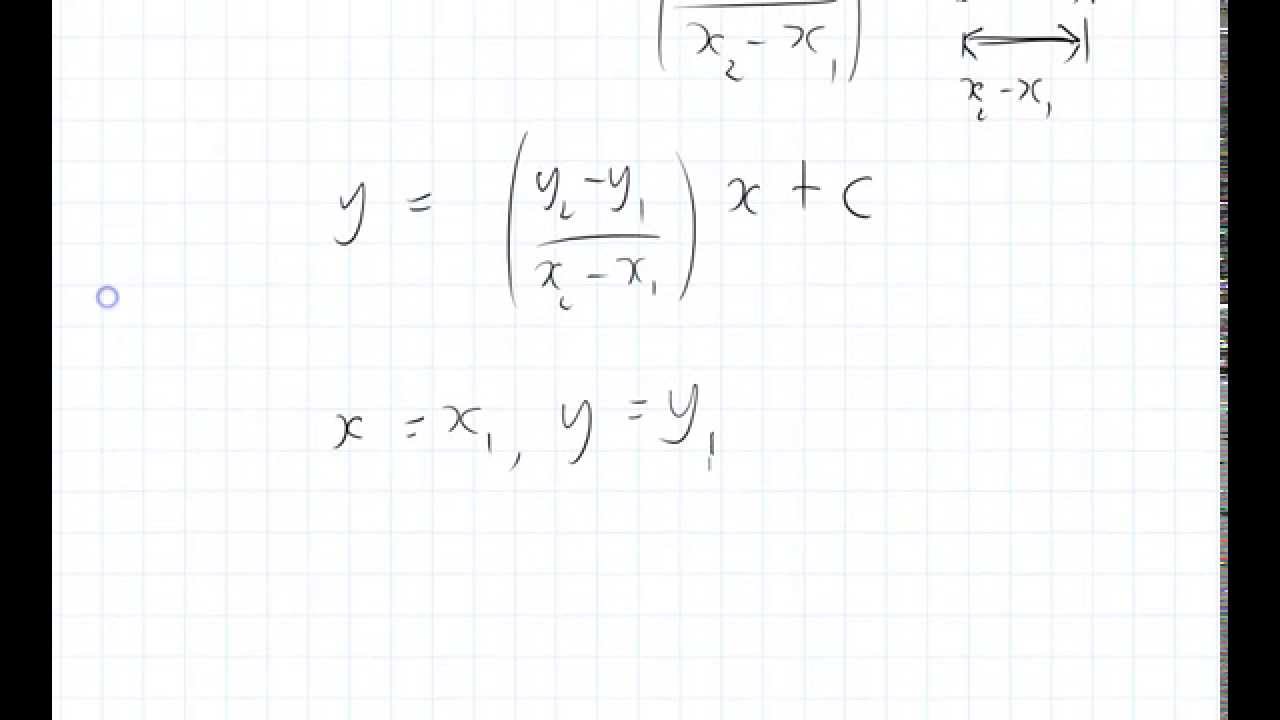 x₂ - x₁
x₂ - x₁
y = (y₂ - y₁ / x₂ - x₁) x + c
x = x₁, y = y₁